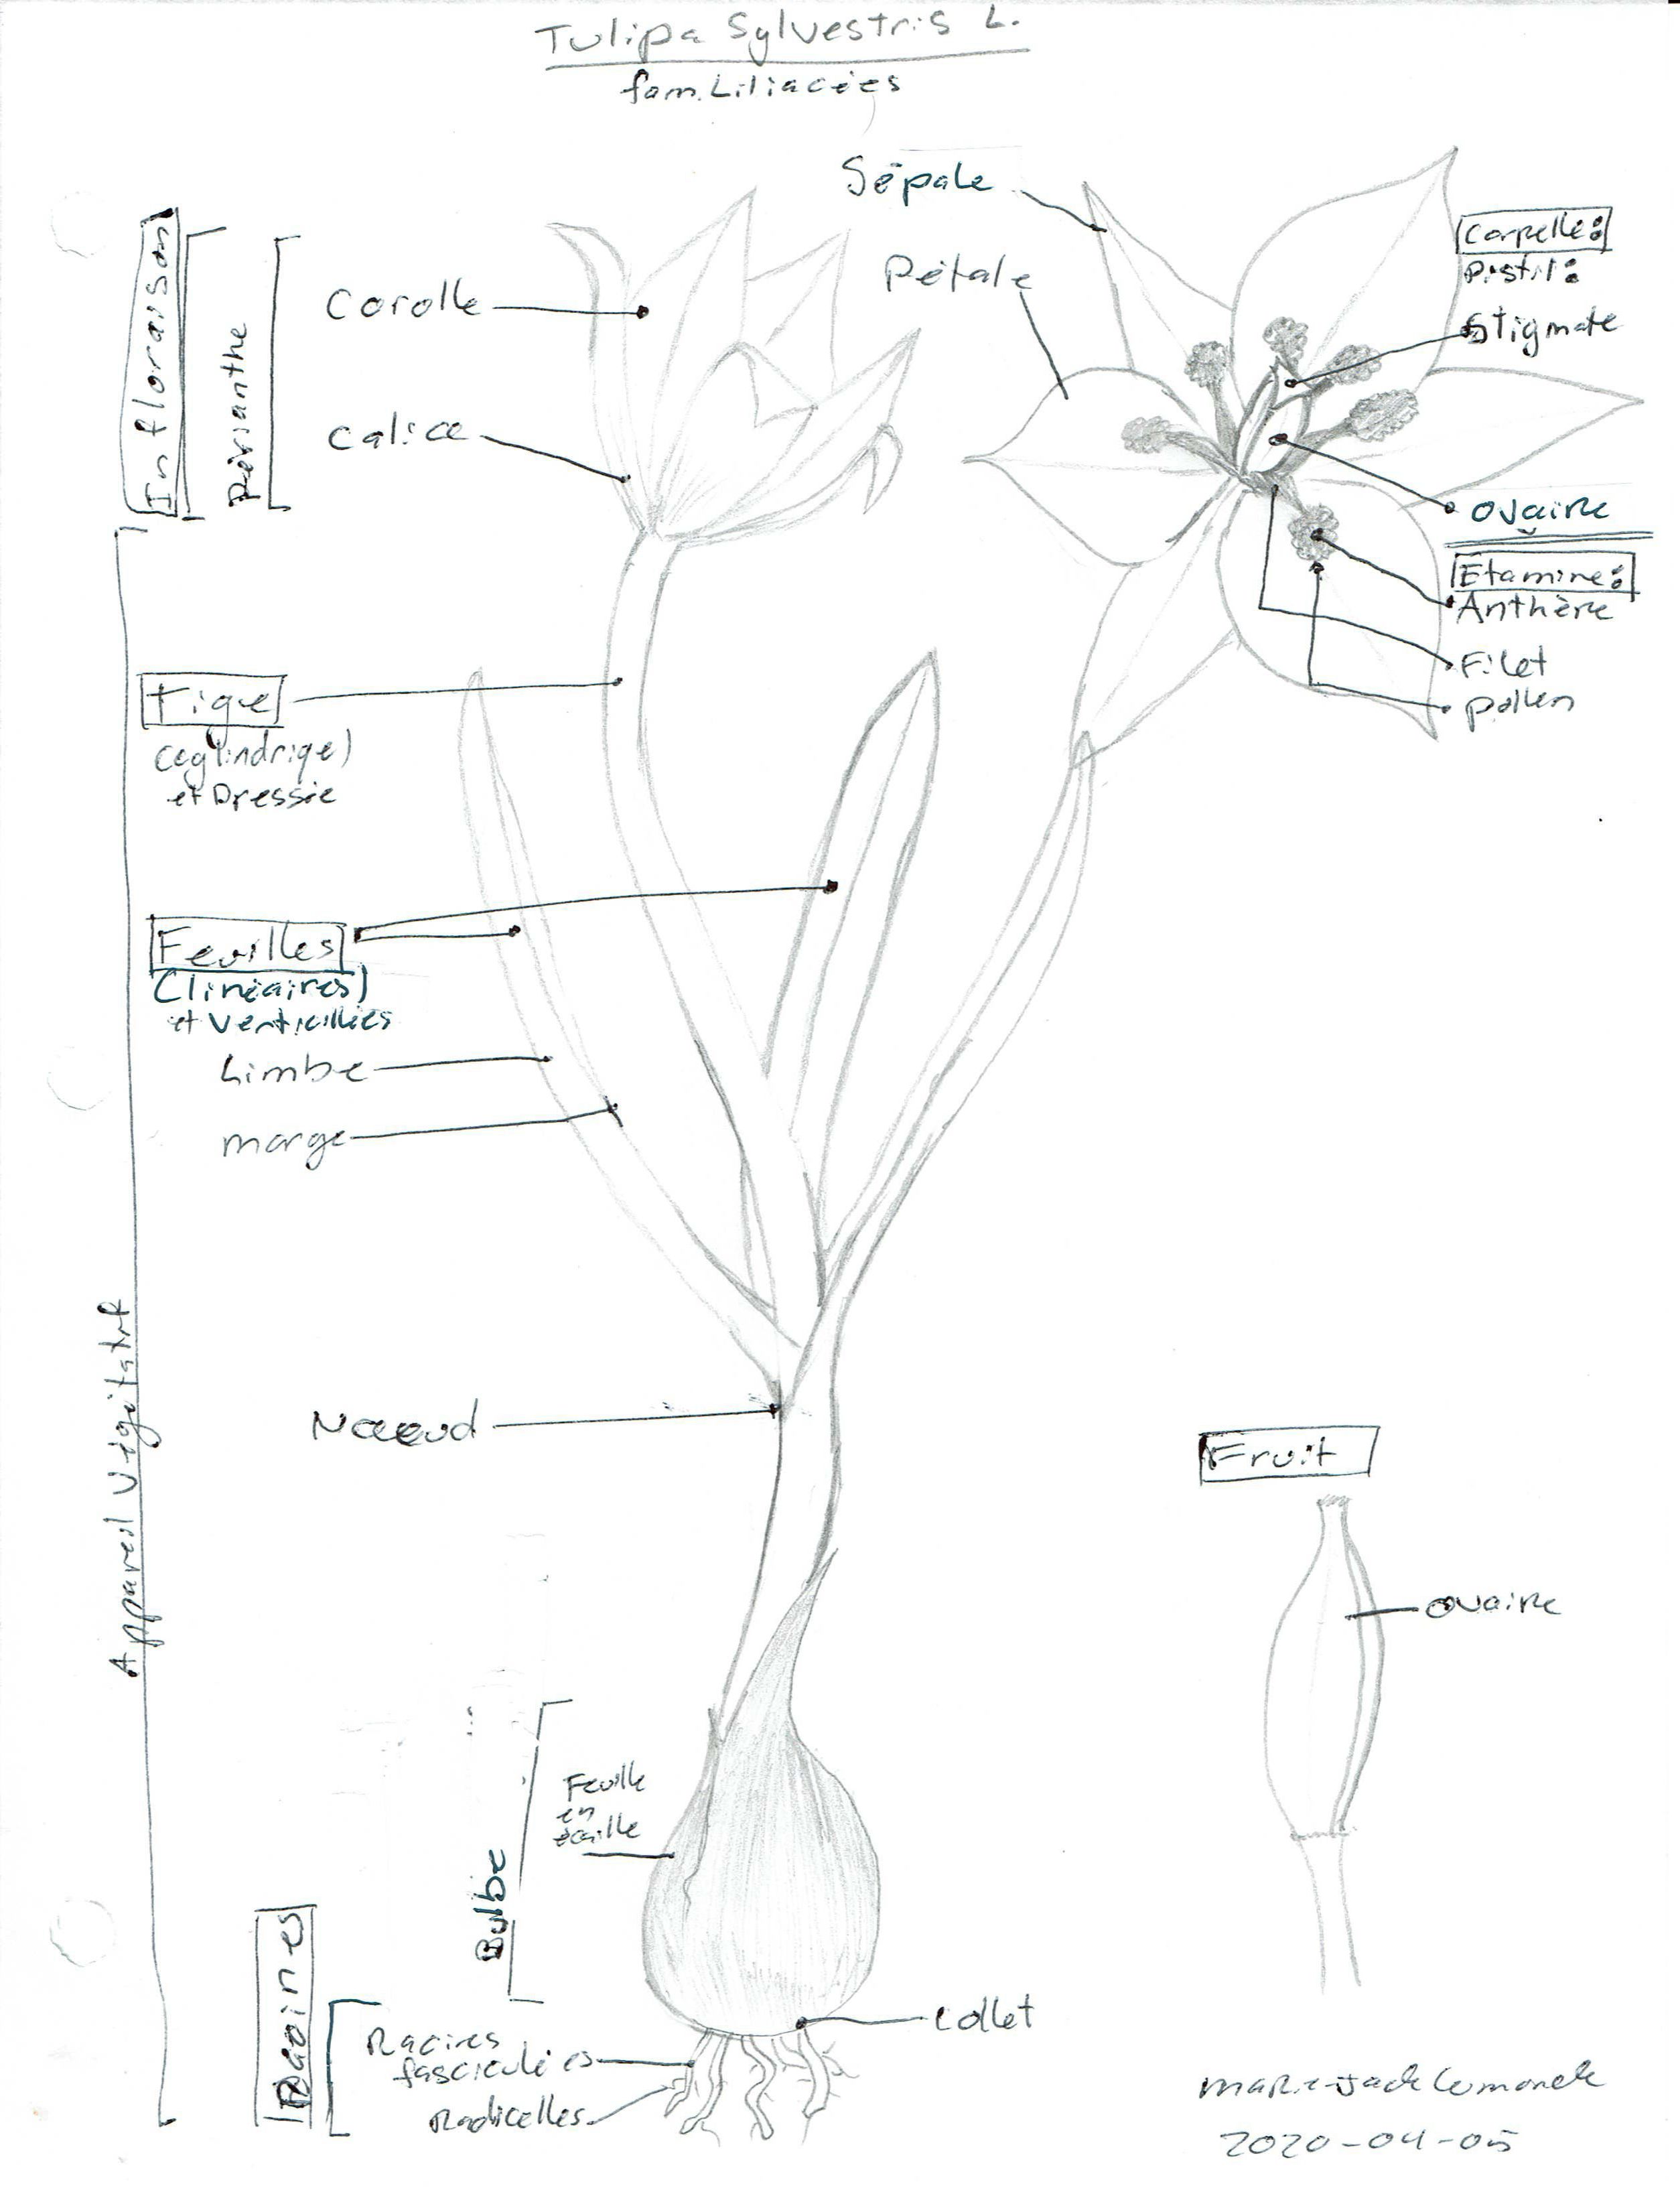 Tulipa Sylvestris L.
fam. Liliacées
Infloraison
Périanthe
Corolle
calice
Sépale
Pétale
Carpelle:
Pistil:
Stigmate
ovaire
Etamine:
Anthère
Filet
pollen
Appareil Végétatif
Tige
(cylindrique)
et Dressée
Feuilles
(linéaires)
et Verticillées
Limbe
marge
Noeud
Fruit
ovaire
Bulbe
Feuille
en
écaille
Racines
Racines
fasciculées
Radicelles
collet
2020-04-05